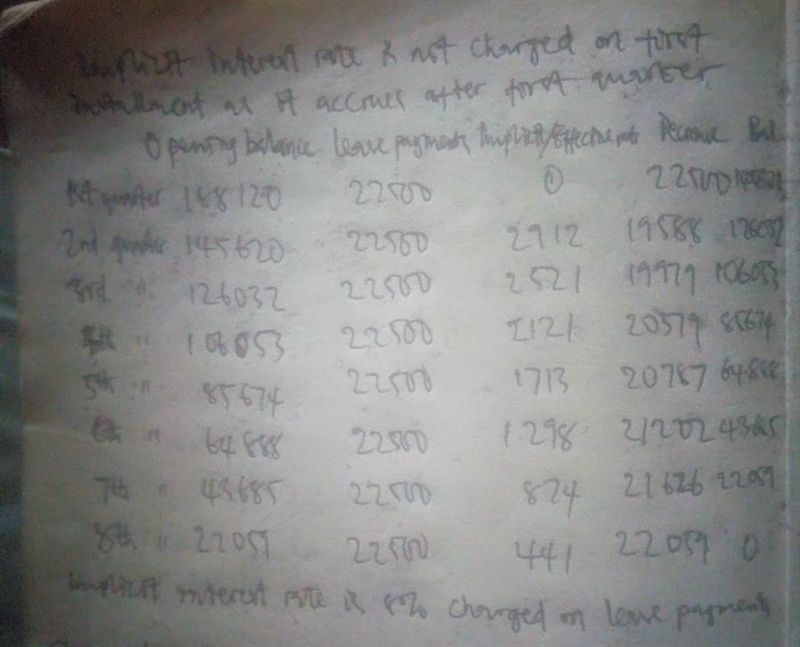 Implicit interest rate is not charged on first
installment as it accrues after first quarter
Opening balance lease payments Implicit/Effective Decrease Bal
1st quarter 168120 22500 0 22500 145620
2nd quarter 145620 22500 2912 19588 126032
3rd " 126032 22500 2521 19979 106053
4th " 106053 22500 2121 20379 85674
5th " 85674 22500 1713 20787 64888
6th " 64888 22500 1298 21202 43685
7th " 43685 22500 874 21626 22059
8th " 22059 22500 441 22059 0
Implicit interest rate is 8% charged on lease payments